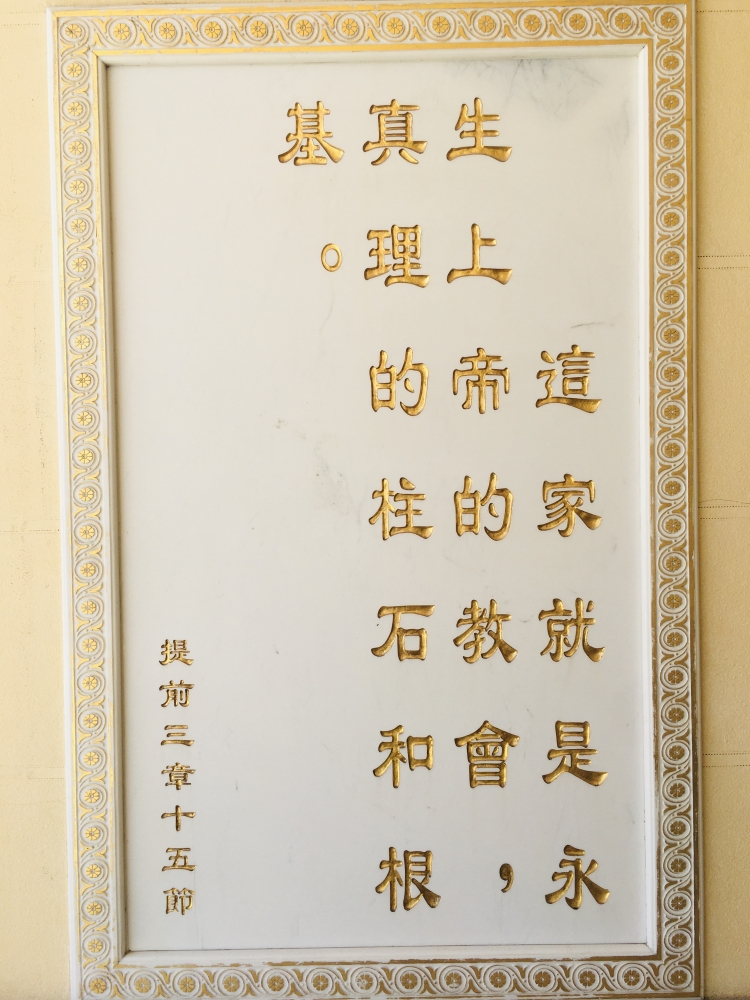 這家就是永
生上帝的教會，
真理的柱石和根
基。
提前三章十五節